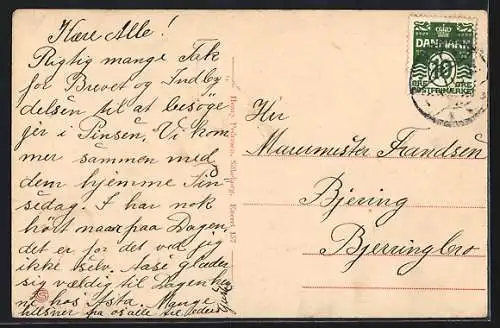 Kære Alle!
Rigtig mange Tak
for Brevet og Indby
delsen til at besøge
jer i Pinsen. Vi kom
mer sammen med
dem hjemme Pin
sedag. I har nok
hørt naar paa Dagen,
det er for det ved jeg
ikke selv. Aase glæder
sig vældig til Dagen hen
ne hos Ysta. Mange
hilsner fra os alle til eder
Henny Pedersen, Silkeborg. Eneret 157
DANMARK
10
ØRE ØRE
POSTFRIMÆRKE
Hr
Murermester Frandsen
Bjering
Bjerringbro